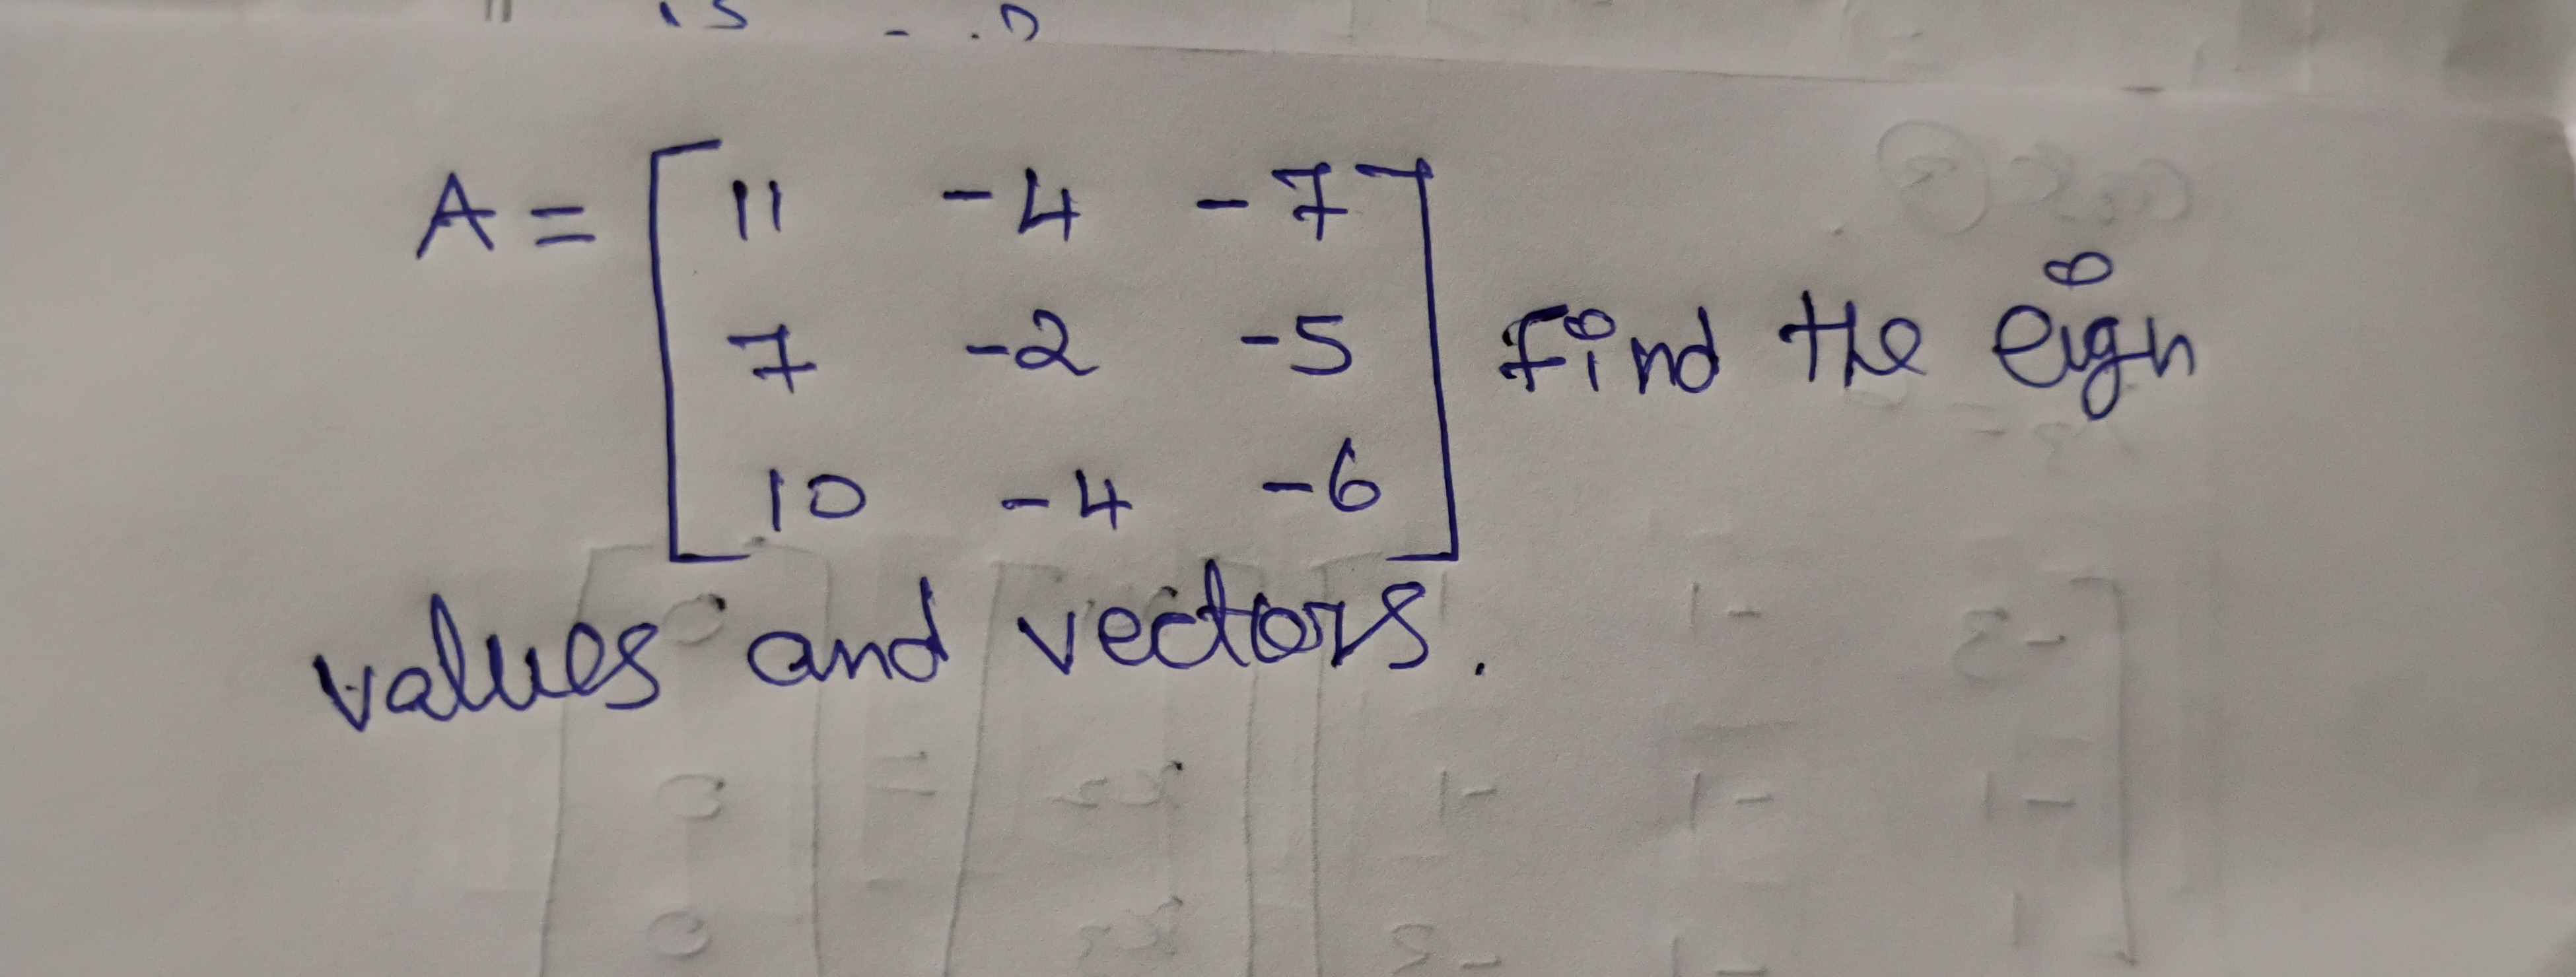 A = [ 11 -4 -7
7 -2 -5
10 -4 -6 ] Find the eign
values and vectors.